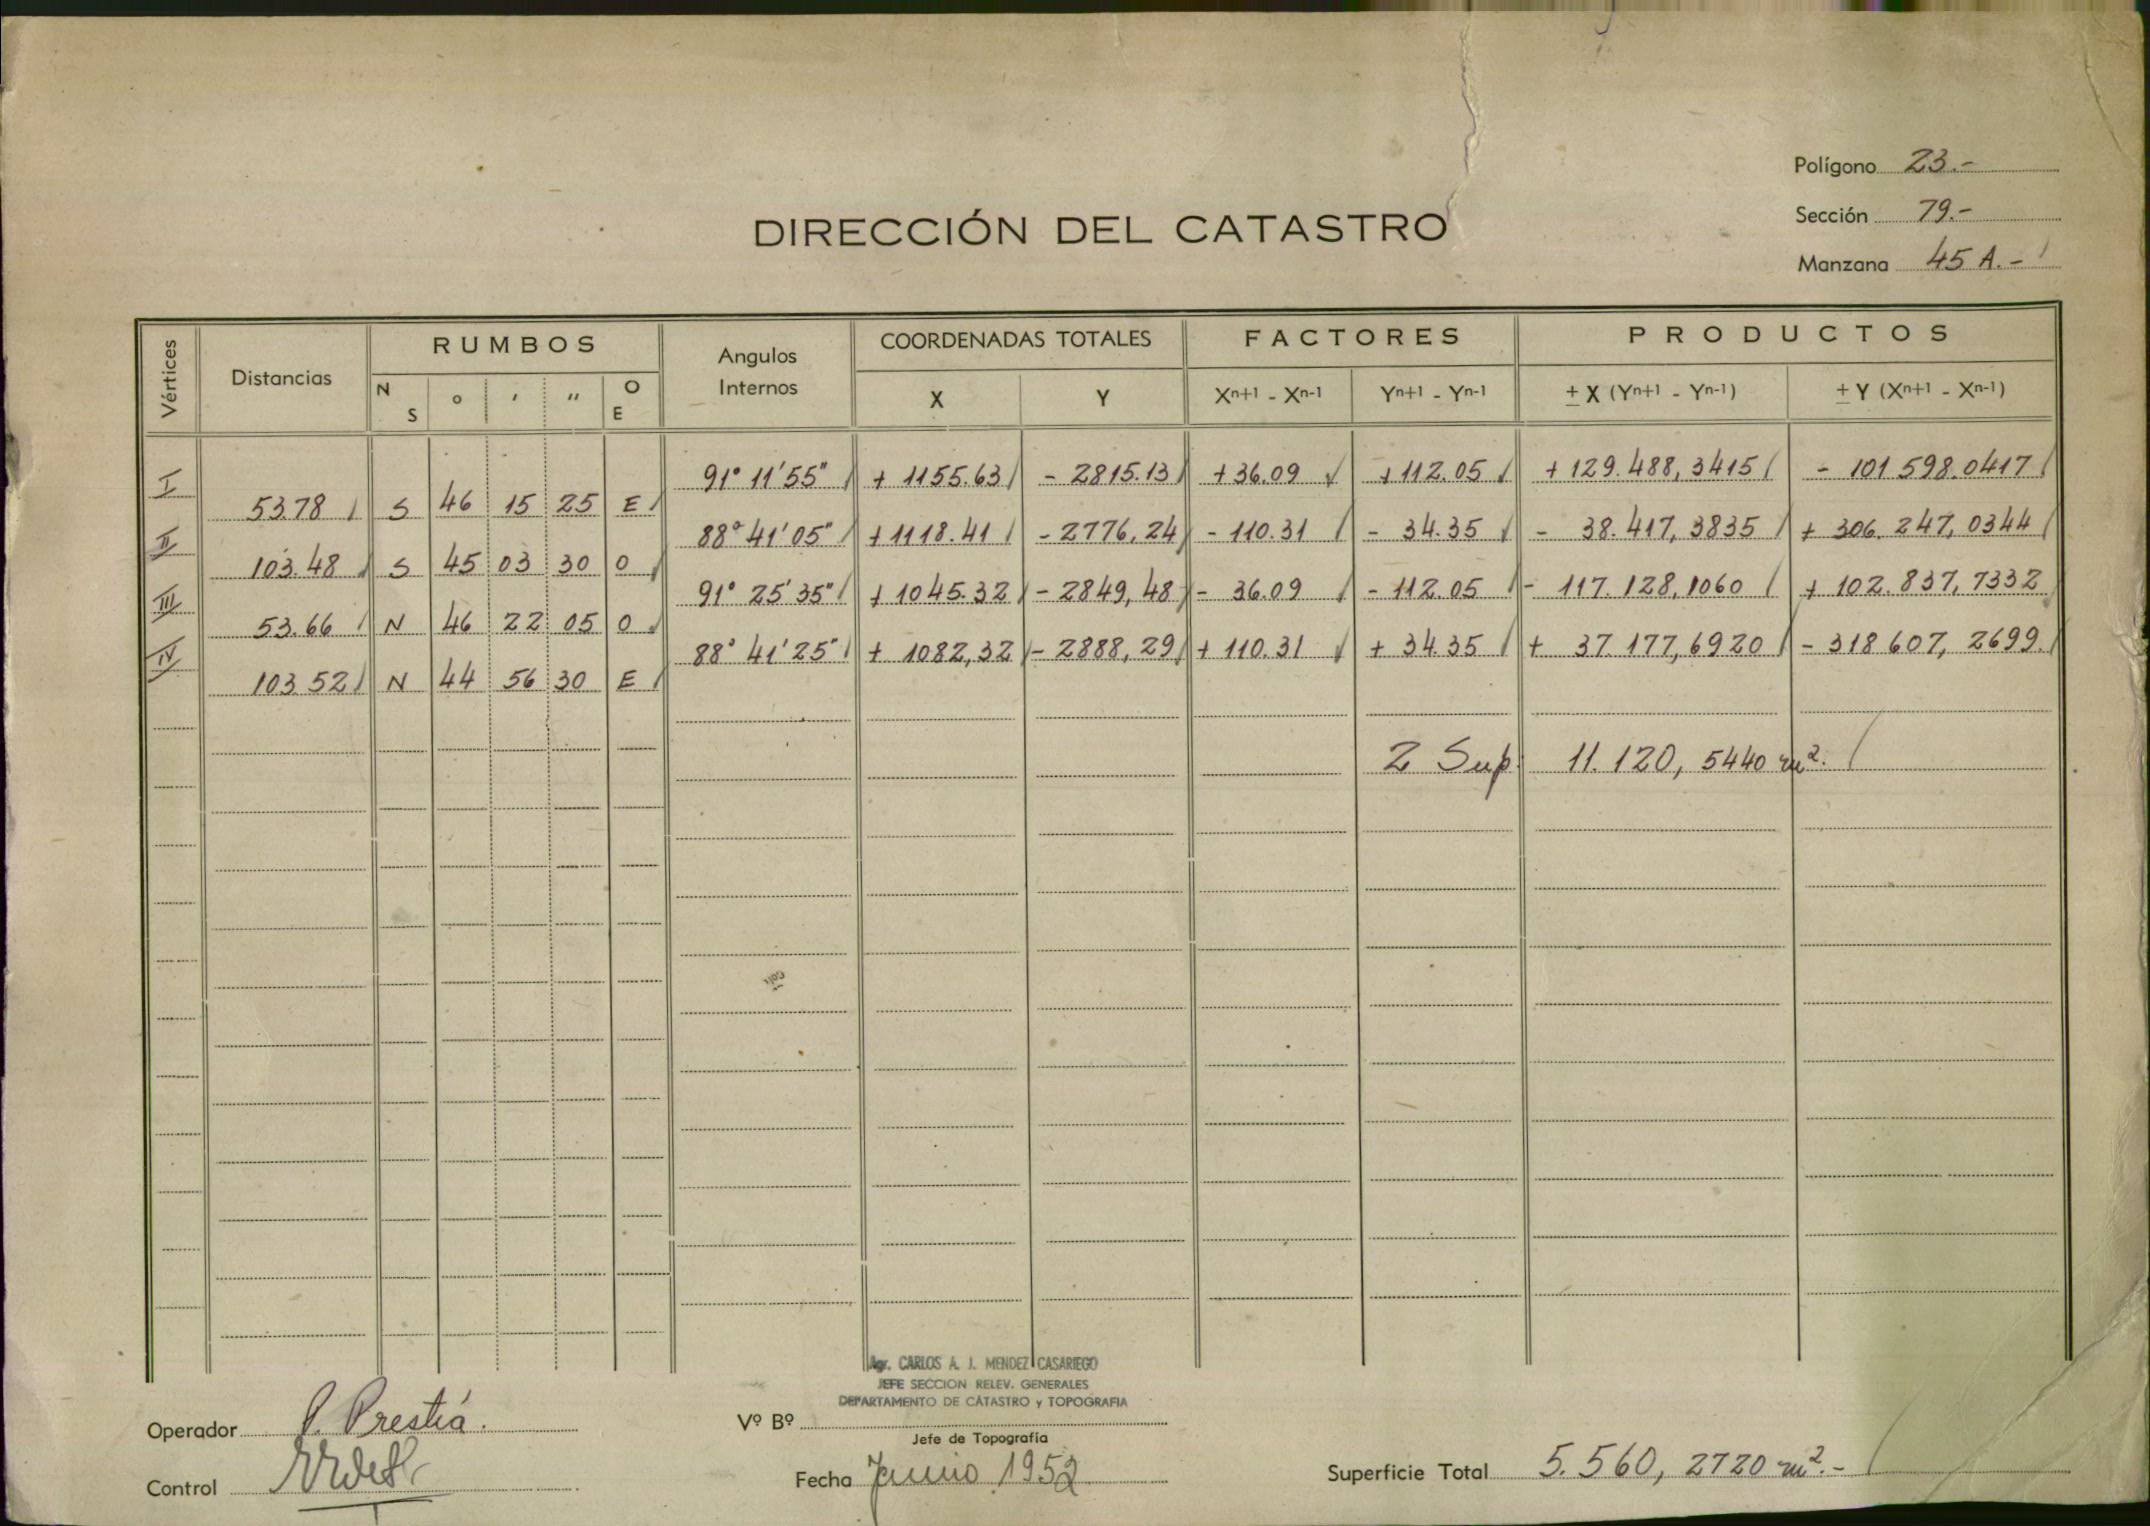 Polígono 23.-
Sección 79.-
Manzana 45 A.-
DIRECCIÓN DEL CATASTRO
Vértices Distancias RUMBOS Angulos Internos COORDENADAS TOTALES FACTORES PRODUCTOS
N S ° ' " O E X Y Xn+1 - Xn-1 Yn+1 - Yn-1 ± X (Yn+1 - Yn-1) ± Y (Xn+1 - Xn-1)
I 91° 11' 55" + 1155.63 - 2815.13 + 36.09 + 112.05 + 129.488,3415 - 101 598.0417
53.78 S 46 15 25 E
II 88° 41' 05" + 1118.41 - 2776,24 - 110.31 - 34.35 - 38.417,3835 + 306.247,0344
103.48 S 45 03 30 O
III 91° 25' 35" + 1045.32 - 2849,48 - 36.09 - 112.05 - 117.128,1060 + 102.837,7332
53.66 N 46 22 05 O
IV 88° 41' 25" + 1082,32 - 2888,29 + 110.31 + 34.35 + 37.177,6920 - 318 607,2699.
103.52 N 44 56 30 E
2 Sup. 11.120,5440 m².
Agr. CARLOS A. J. MENDEZ CASARIEGO
JEFE SECCION RELEV. GENERALES
DEPARTAMENTO DE CATASTRO y TOPOGRAFIA
Operador P. Prestiá.
Vº Bº
Jefe de Topografía
Control
Fecha Junio 1952
Superficie Total 5.560,2720 m².-